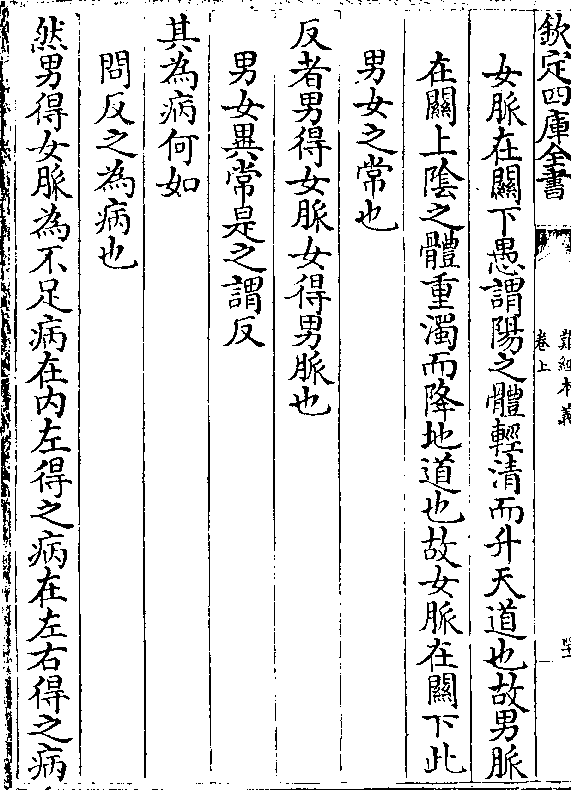 欽定四庫全書
難經本義
卷上
女脈在關下愚謂陽之體輕清而升天道也故男脈
在關上陰之體重濁而降地道也故女脈在關下此
男女之常也
反者男得女脈女得男脈也
男女異常是之謂反
其為病何如
問反之為病也
然男得女脈為不足病在内左得之病在左右得之病